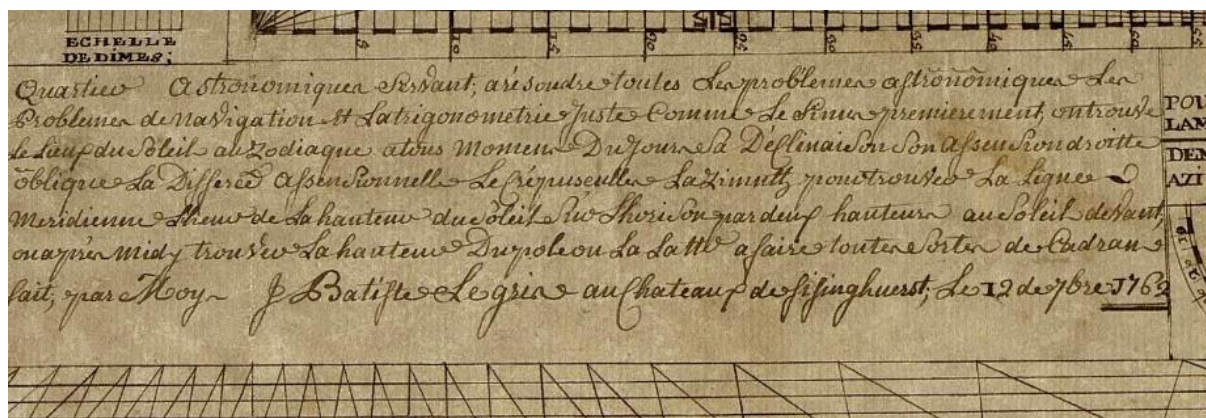 ECHELLE
DE DIMES;
5 10 15 20 25 30 35 40 45 50 55
Quartier Astronomiques servant, a résoudre toutes Les problemes astronomiques Les
Problemes de navigation et La trigonometrie juste Comme Le Sinus premierement, on trouve
Le Lieux du Soleil au Zodiaque a tous Momens Du jour Sa Déclinaison Son Assension droitte
oblique La Differce Assensionnelle Le Crépusculles Lazimutt, pour trouver La Ligne
Meridienne Lheure de La hauteur du Soleil Sur Lhorison par deux hauteurs au Soleil devant,
ou aprés midy trouver La hauteur Du pole ou La Latte a faire toutes Sortes de Cadrans
fait, par Moy J Batiste Legris au Chateaux de Sisinghuerst, Le 12 de 7bre 1762
POU
LAM
DEN
AZI